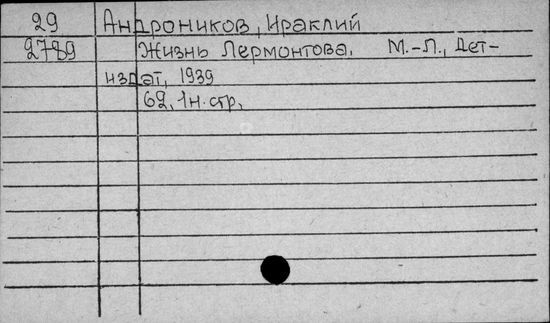 29 Андроников, Ираклий
2789 Жизнь Лермонтова. М.-Л., Дет-
издат, 1939
62, 1н. стр.